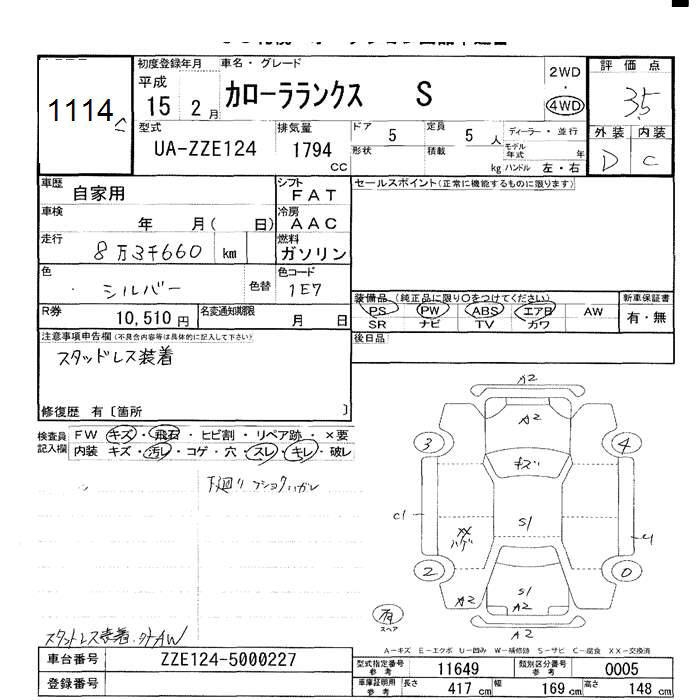 1114
初度登録年月
平成
15 2月
車名・グレード
カローラランクス S
2WD
・
4WD
評価点
3.5
外装 内装
D C
型式
UA-ZZE124
排気量
1794
CC
ドア 5
定員 5人
形状
積載 kg
ディーラー・並行
モデル年式 年
ハンドル 左・右
車歴
自家用
シフト
FAT
セールスポイント(正常に機能するものに限ります)
車検
年 月( 日)
冷房
AAC
走行
8万3千660 km
燃料
ガソリン
色
シルバー
色替
色コード
1E7
装備品(純正品に限り○をつけてください)
PS PW ABS エアB AW
SR ナビ TV カワ
新車保証書
有・無
R券
10,510円
名変通知期限
月 日
後日品
注意事項申告欄(不具合内容等は具体的に記入して下さい)
スタッドレス装着
修復歴 有〔箇所 〕
検査員記入欄
FW キズ・飛石・ヒビ割・リペア跡・×要
内装 キズ・汚レ・コゲ・穴・スレ・キレ・破レ
下廻り
A2
A2
3
4
キズ
C1
S1
××
ハゲ
2
0
S1
A2
A2
A2
A2
有
スペア
スタッドレス装着
A-キズ E-エクボ U-凹み W-補修跡 S-サビ C-腐食 XX-交換済
車台番号
ZZE124-5000227
登録番号
型式指定番号
参考
11649
類別区分番号
参考
0005
車庫証明用
参考
長さ 417cm
幅 169cm
高さ 148cm